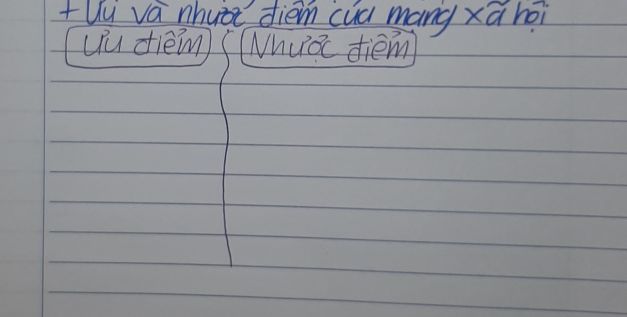 + Ưu và nhược điểm của mạng xã hội
Ưu điểm Nhược điểm